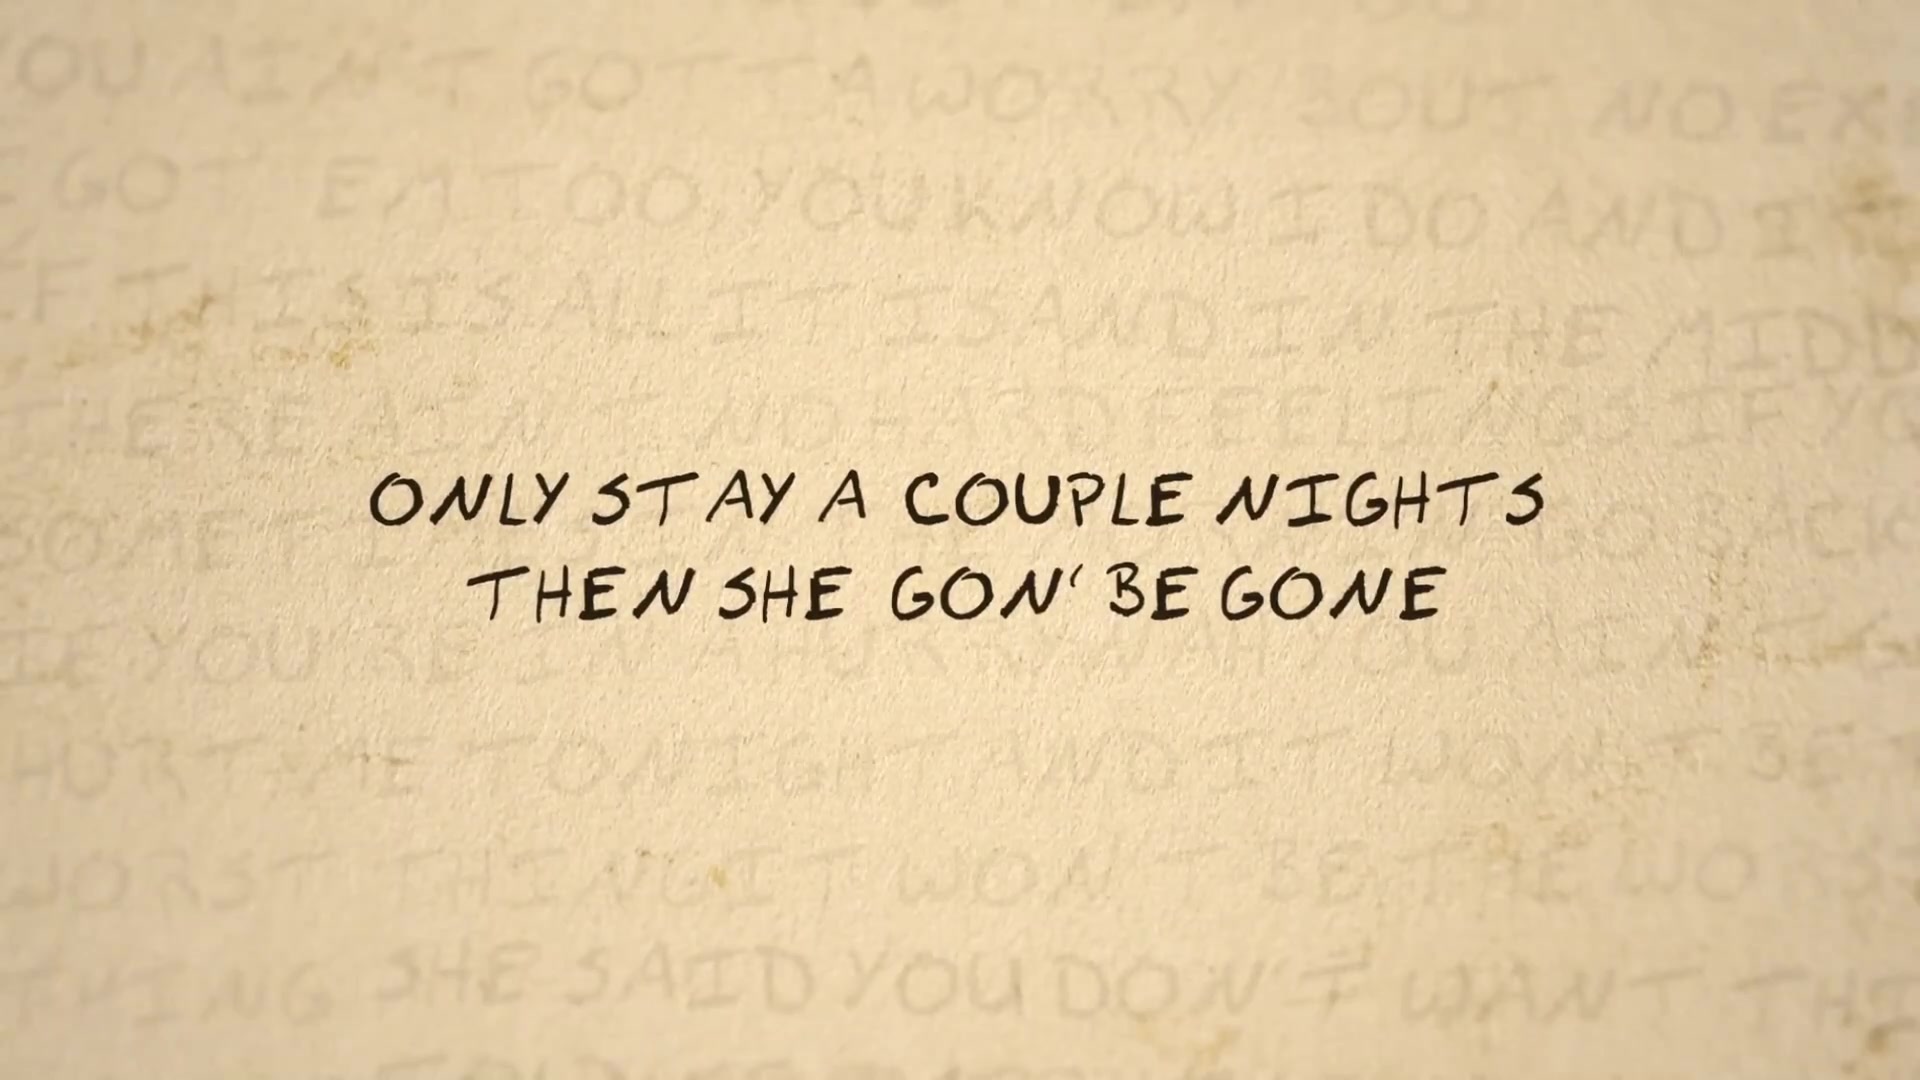 OU AIN'T GOTTA WORRY 'BOUT NO EX
GOT EM TOO, YOU KNOW I DO AND I
IF THIS IS ALL IT IS AND IN THE MIDD
THERE AIN'T NO HARD FEELINGS IF YO
ONLY STAY A COUPLE NIGHTS
THEN SHE GON' BE GONE
IF YOU'RE IN A HURRY NAH YOU
HURT ME TONIGHT AND IT WON'T BE
WORST THING IT WON'T BE THE WORS
THING SHE SAID YOU DON'T WANT THI